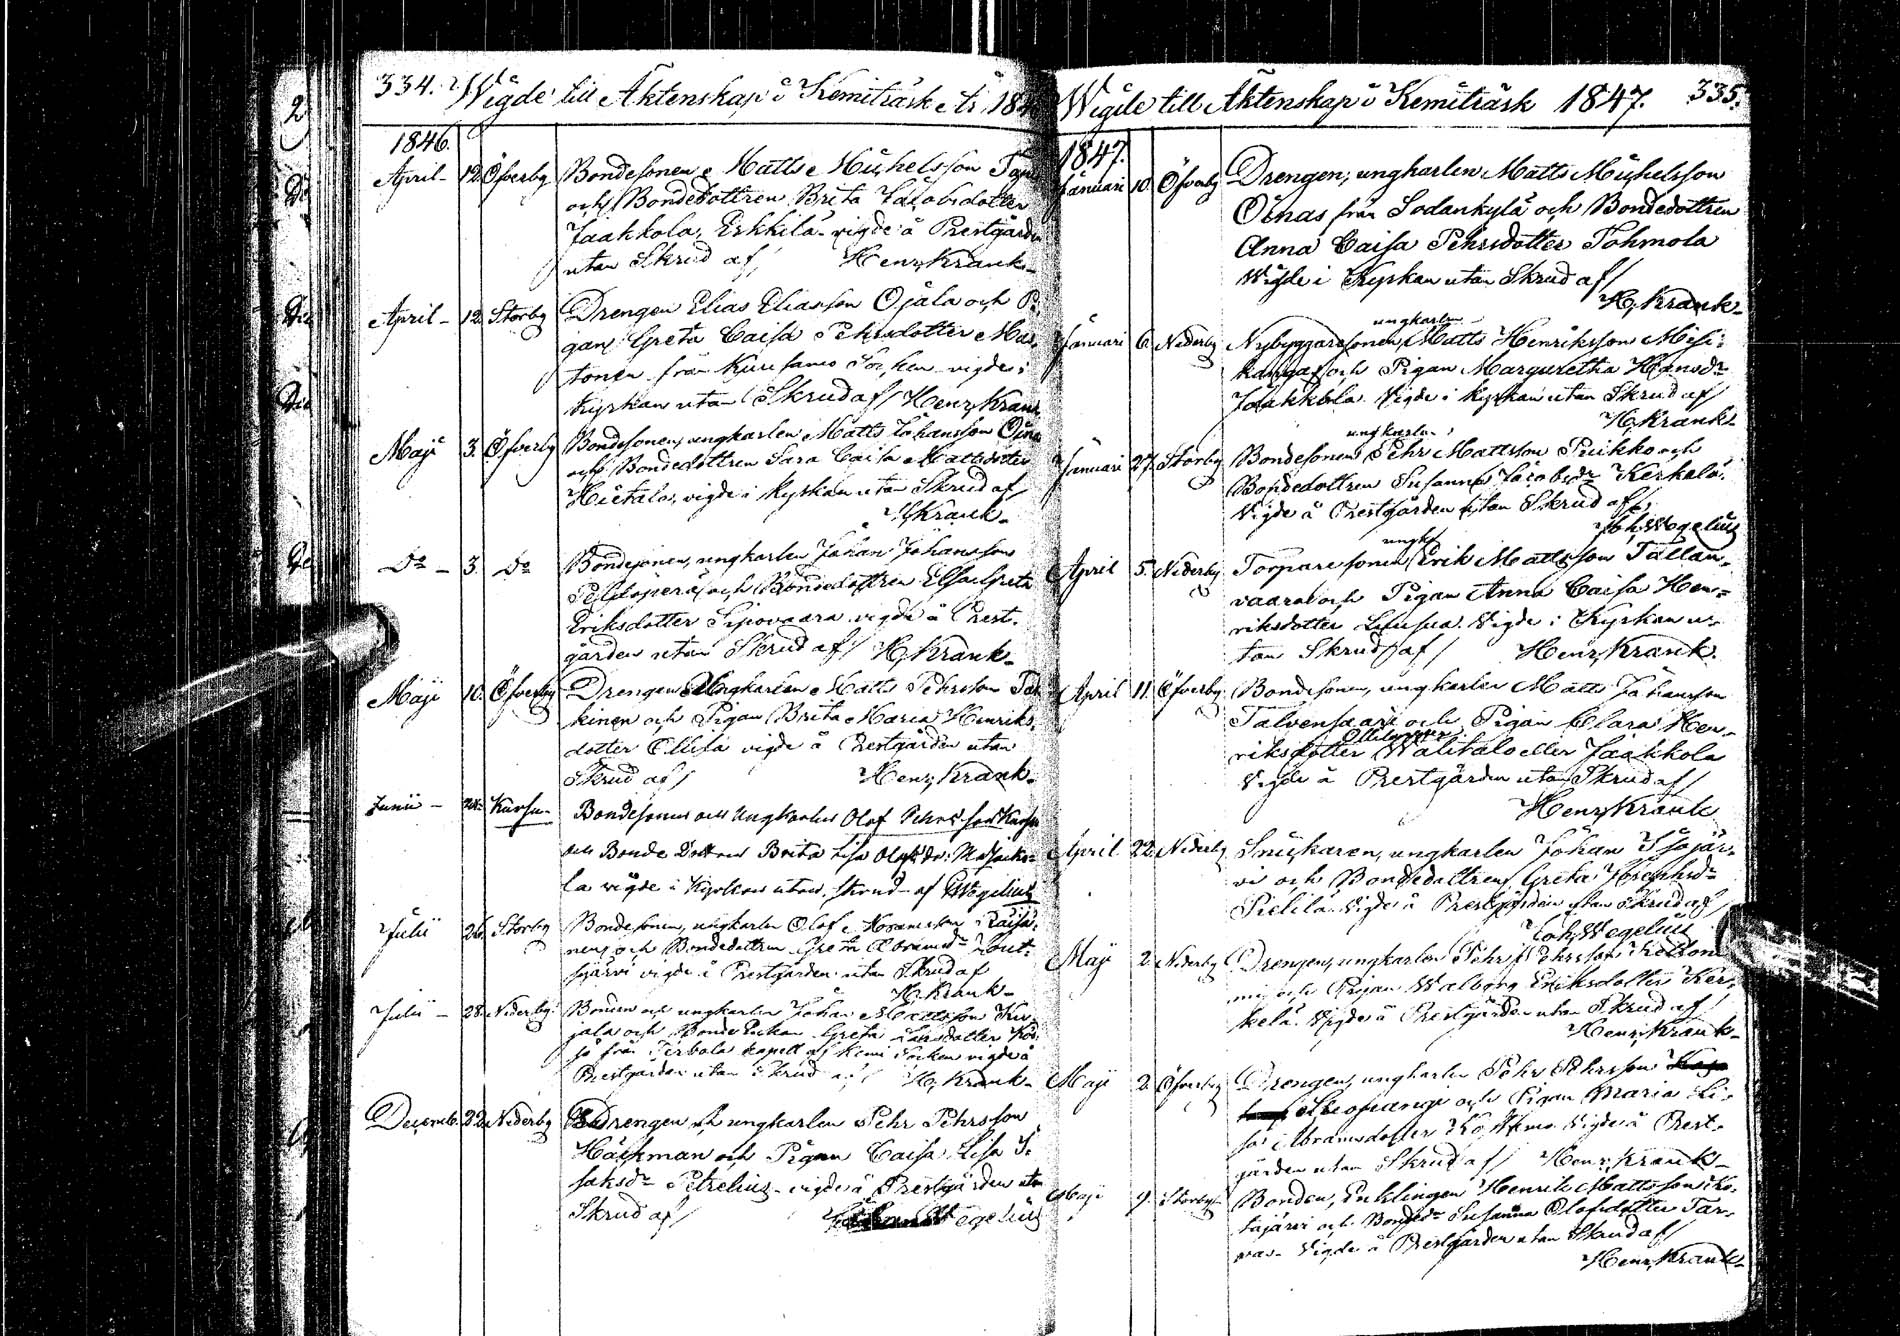 334. Wigde till Äktenskap i Kemiträsk År 184
1846.
April - 12. Öfverby Bondesonen Matts Michelsson
och Bondedottren Brita Jacobsdotter
Jaakkola, Erkkilä vigde å Prestgården
utan Skrud af Henr. Krank
April - 12. Storby Drengen Elias Eliasson Ojala och Pi-
gan Greta Caisa Pehrsdotter Mus-
tonen från Kuusamo Socken vigde i
kyrkan utan Skrud af Henr. Krank
Maji 3. Öfverby Bondesonen, ungkarlen Matts Johansson
och Bondedottren Sara Caisa Mattsdotter
Hietala, vigde i kyrkan utan Skrud af
H. Krank
Do - 3. Do Bondesonen, ungkarlen Johan Johansson
och Bondedottren Elsa Greta
Eriksdotter Sipovaara vigde å Prest-
gården utan Skrud af H. Krank
Maji 10. Öfverby Drengen Ungkarlen Matts Pehrsson
kinen och Pigan Brita Maria Henriks-
dotter Ollila vigde å Prestgården utan
Skrud af Henr. Krank
Junii - 24. Kursu Bondesonen och Ungkarlen Olof Pehrsson Kursu
och Bonde Dottren Brita Lisa Olofsdr
la vigde i Kyrkan utan Skrud af Wegelius
Julii 26. Storby Bondesonen, ungkarlen Olof Abramsson
nen och Bondedottren Greta Abramsdr
järvi vigde i Prestgården utan Skrud af
H. Krank
Julii - 28. Nederby Bonden och ungkarlen Johan Mattsson
jala och Bonde Enkan Greta Larsdotter
från Tervola kapell af Kemi Socken vigde å
Prestgården utan Skrud af H. Krank
Decemb. 22. Nederby Drengen och ungkarlen Pehr Pehrsson
Häikman och Pigan Caisa Lisa I-
saksdr Petrelius vigde å Prestgården utan
Skrud af Wegelius
Wigde till Äktenskap i Kemiträsk 1847. 335.
1847.
Januari 10. Öfverby Drengen, ungkarlen Matts Michelsson
Oinas från Sodankylä och Bondedottren
Anna Caisa Pehrsdotter Tohmola
Vigde i Kyrkan utan Skrud af
H. Krank
ungkarlen
Januari 6. Nederby Nybyggaresonen, Matts Henriksson Misi-
kangas och Pigan Margaretha Hansdr
Jaakkola. Vigde i kyrkan utan Skrud af
H. Krank
ungkarlen
Januari 27. Storby Bondesonen Pehr Mattsson Puikko och
Bondedottren Susanna Jacobsdr Kerkelä.
Vigde å Prestgården utan Skrud af
Joh. Wegelius
ungk.
April 5. Nederby Torparesonen Erik Mattsson Tallan-
vaara och Pigan Anna Caisa Hen-
riksdotter Luusua. Vigde i Kyrkan u-
tan Skrud af Henr. Krank.
April 11. Öfverby Bondesonen, ungkarlen Matts Johansson
Talvensaari och Pigan Clara Hen-
riksdotter Walitalo eller Jaakkola
Vigde å Prestgården utan Skrud af
Henr. Krank
April 22. Nederby Snickaren, ungkarlen Johan Isojär-
vi och Bondedottren Greta Josephsdr
Pielilä. Vigde å Prestgården utan Skrud af
Joh. Wegelius
Maji 2. Nederby Drengen, ungkarlen Pehr Pehrsson
mi och Pigan Walborg Eriksdotter Ker-
kelä. Vigde å Prestgården utan Skrud af
Henr. Krank
Maji 2. Öfverby Drengen, ungkarlen Pehr Pehrsson
och Pigan Maria Li-
sa Abramsdotter Vigde å Prest-
gården utan Skrud af Henr. Krank
Maji 9. Storby Bonden, Enklingen Henrik Mattsson
tajärvi och Bondedr Susanna Olofsdotter Tar-
vas. Vigde å Prestgården utan Skrud af
Henr. Krank